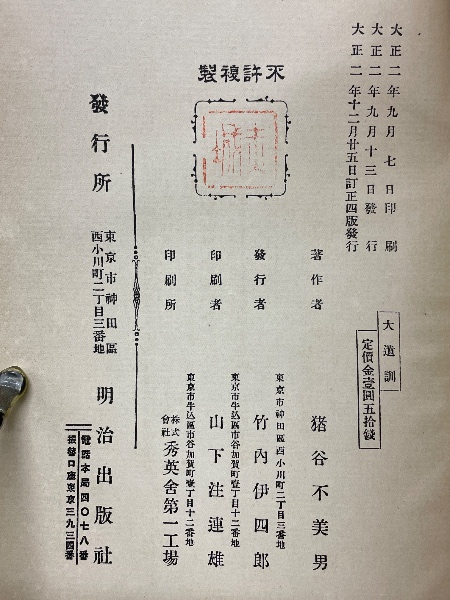 大正二年九月七日印刷
大正二年九月十三日發行
大正二年十二月廿五日訂正四版發行
大道訓
定價金壹圓五拾錢
不許複製
著作者 猪谷不美男
東京市神田區西小川町二丁目三番地
發行者 竹內伊四郎
東京市牛込區市谷加賀町壹丁目十二番地
印刷者 山下注連雄
東京市牛込區市谷加賀町壹丁目十二番地
印刷所 株式會社 秀英舍第一工場
發行所 東京市神田區西小川町二丁目三番地 明治出版社
電話本局四〇七八番
振替口座東京三九三四番